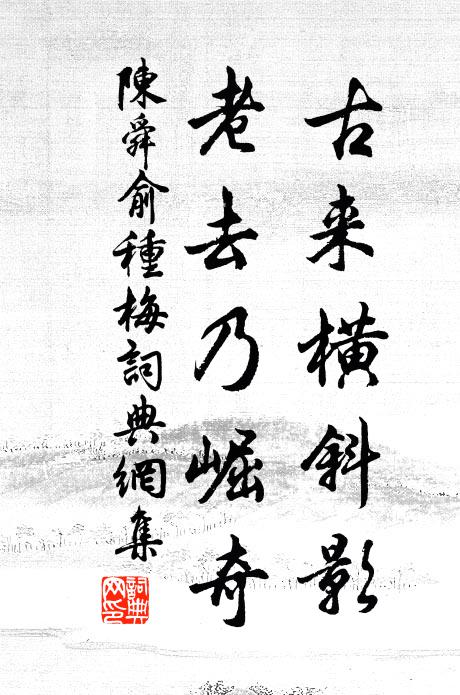 古来橫斜影
老去乃崛奇
陳舜俞種梅詞典網集
詞典網印